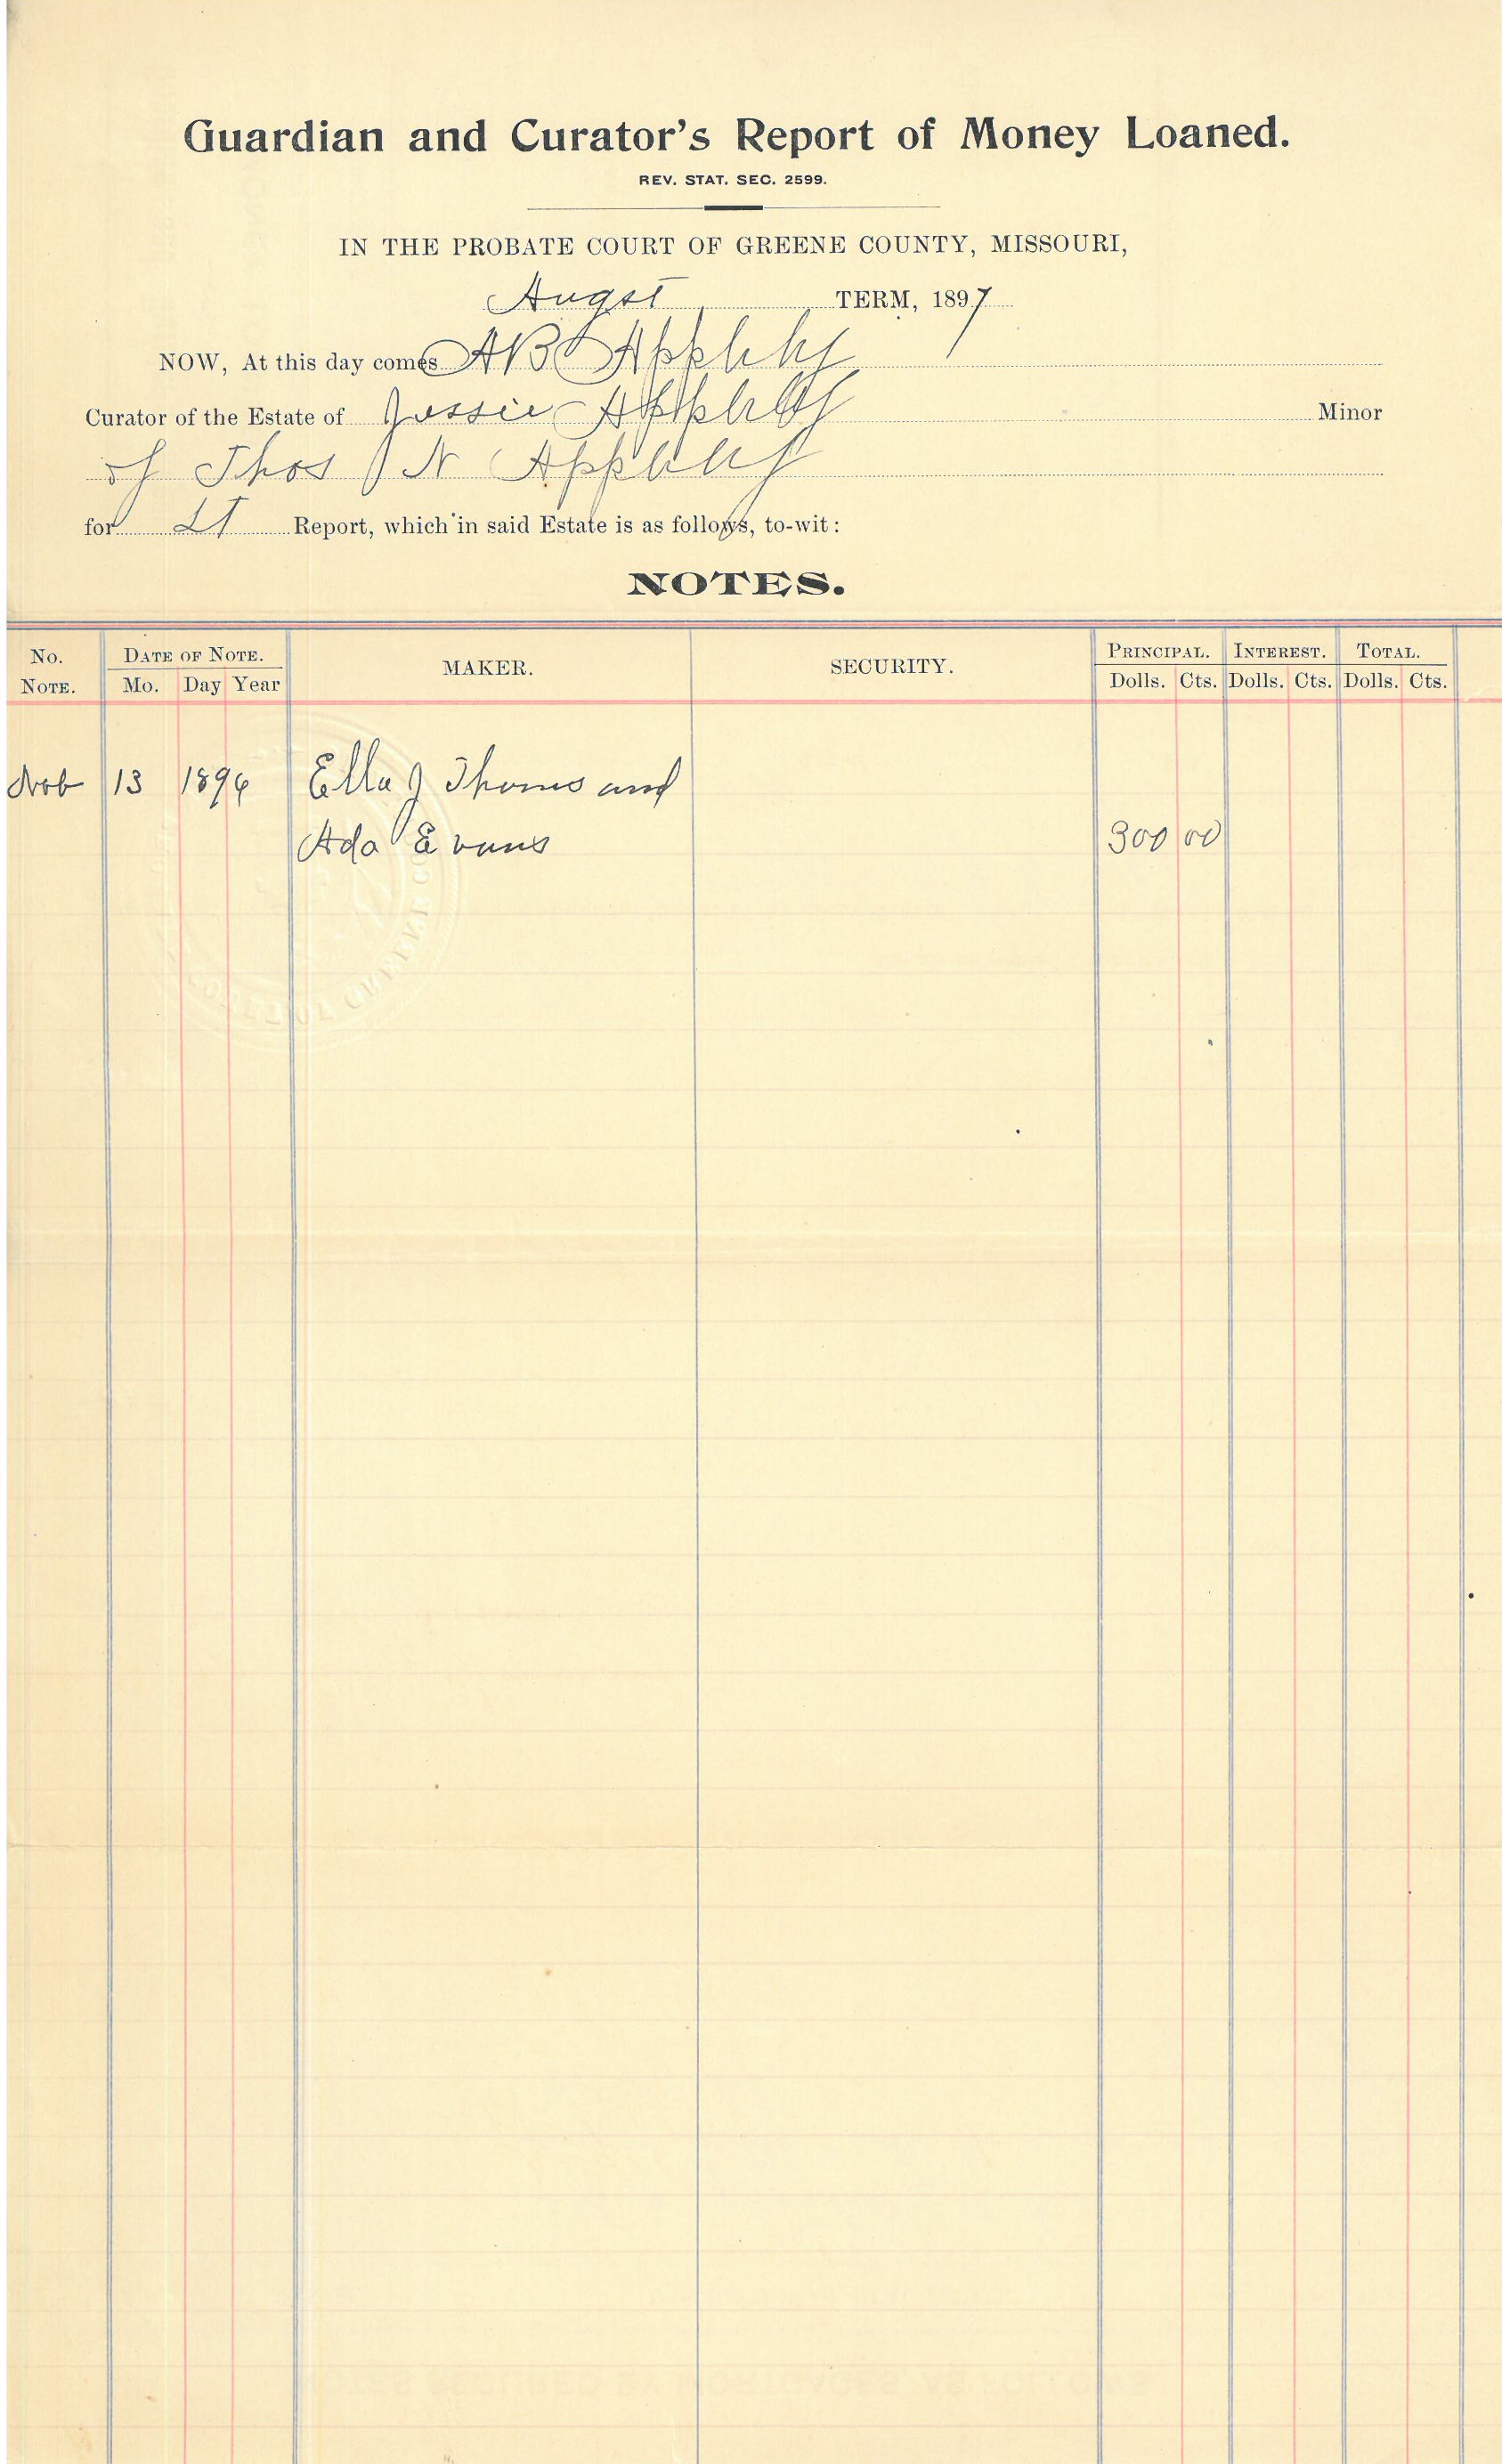 Guardian and Curator's Report of Money Loaned.
REV. STAT. SEC. 2599.
IN THE PROBATE COURT OF GREENE COUNTY, MISSOURI,
Augst TERM, 1897
NOW, At this day comes A B Appleby
Curator of the Estate of Jessie Appleby Minor
of Thos N Appleby
for Report, which in said Estate is as follows, to-wit:
NOTES.
No. NOTE. DATE OF NOTE. Mo. Day Year MAKER. SECURITY. PRINCIPAL. Dolls. Cts. INTEREST. Dolls. Cts. TOTAL. Dolls. Cts.
13 1896 Ella J Thomas and
Ada Evans 300 00